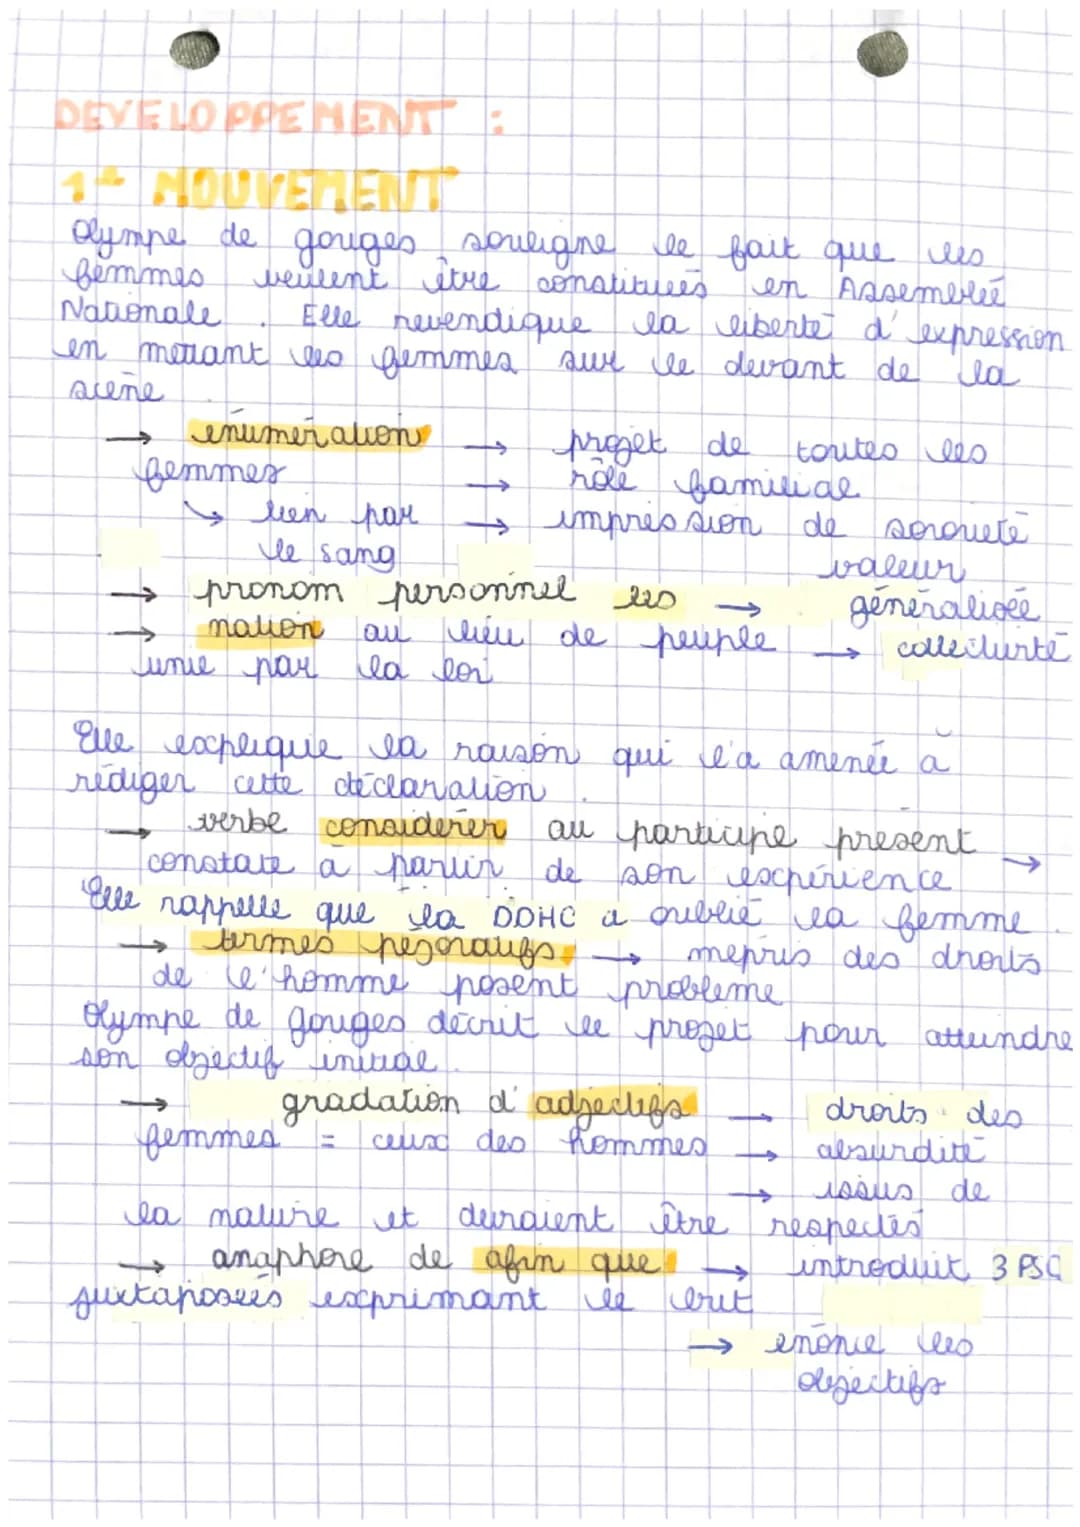 DEVELOPPEMENT :
1er MOUVEMENT
Olympe de gouges souligne le fait que les
femmes veulent être constituées en Assemblée
Nationale. Elle revendique la liberté d'expression
en mettant les femmes sur le devant de la
scène.
→ énumération → projet de toutes les
femmes → rôle familial
↳ lien par → impression de sororiété
le sang valeur
→ pronom personnel les → généralisée
→ nation au lieu de peuple → collectivité
unie par la loi
Elle explique la raison qui l'a amenée à
rédiger cette déclaration.
→ verbe considérer au participe présent →
constate à partir de son expérience
Elle rappelle que la DDHC a oublié la femme.
→ termes péjoratifs → mépris des droits
de l'homme posent problème
Olympe de Gouges décrit le projet pour atteindre
son objectif initial.
→ gradation d'adjectifs → droits des
femmes = ceux des hommes → absurdité
→ issus de
la nature et devraient être respectés
→ anaphore de afin que → introduit 3 PSC
juxtaposées exprimant le but
→ énonce les
objectifs